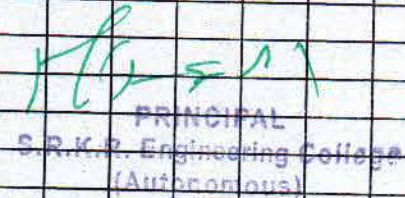 PRINCIPAL
S.R.K.R. Engineering College
(Autonomous)